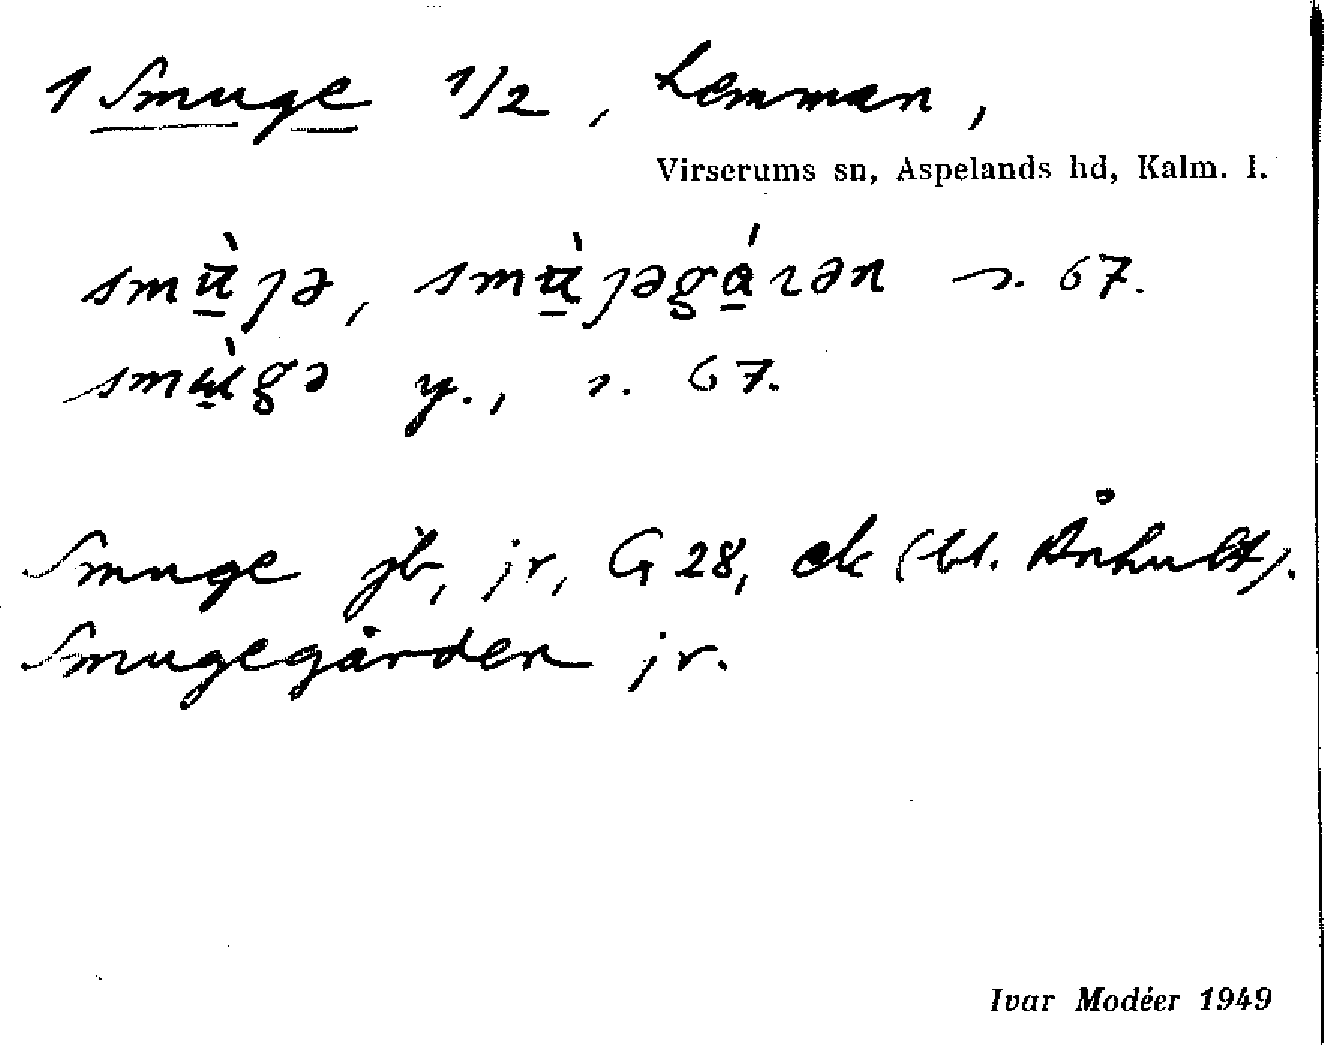 1 Smuge 1/2, hemman,
Virserums sn, Aspelands hd, Kalm. l.
smù̱ȷə, smù̱ȷəgá̱rən s. 67.
smù̱gə y., s. 67.
Smuge jb, jr, G 28, ek (bl. Ånhult).
Smugegården jr.
Ivar Modéer 1949